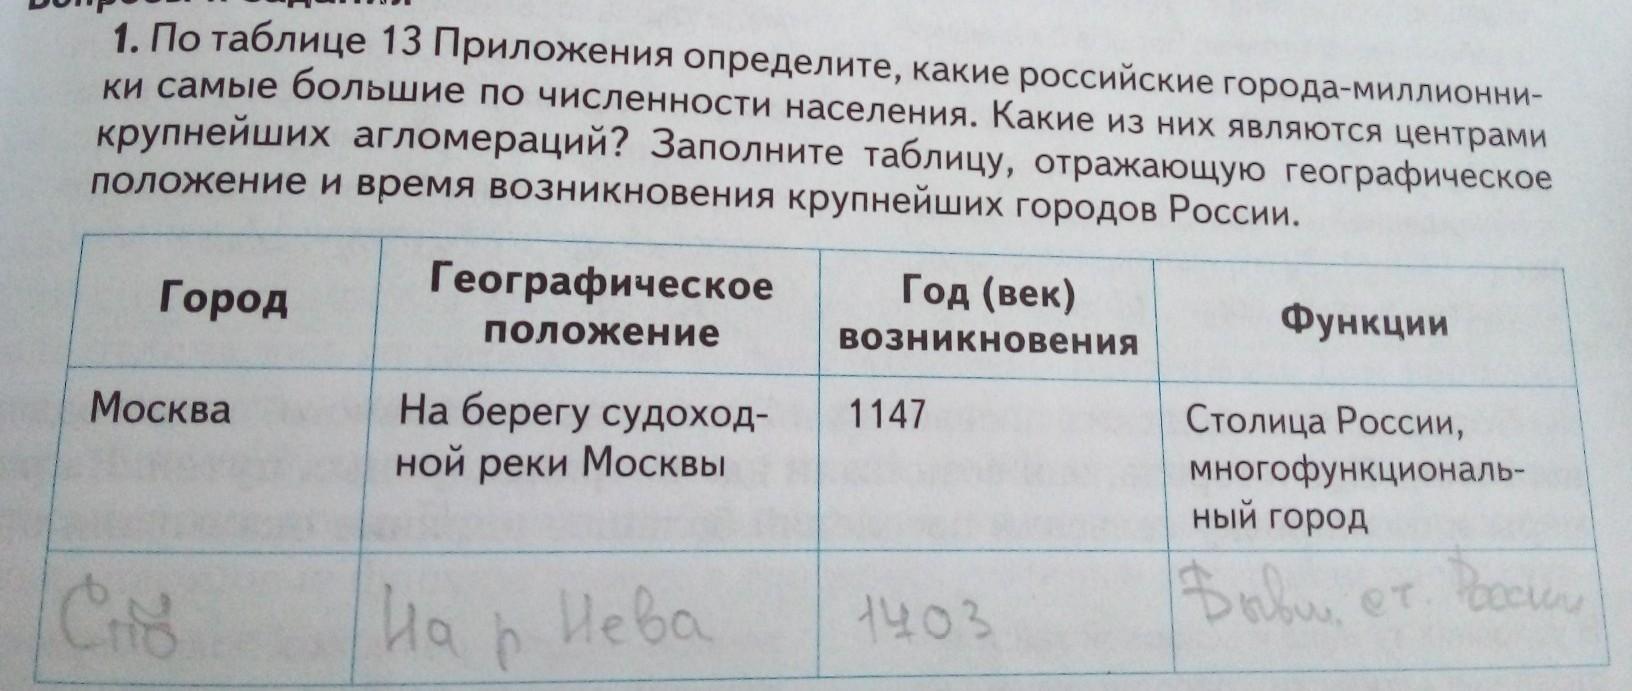 Вопросы и задания
1. По таблице 13 Приложения определите, какие российские города-миллионни-
ки самые большие по численности населения. Какие из них являются центрами
крупнейших агломераций? Заполните таблицу, отражающую географическое
положение и время возникновения крупнейших городов России.
Город
Географическое
положение
Год (век)
возникновения
Функции
Москва
На берегу судоход-
ной реки Москвы
1147
Столица России,
многофункциональ-
ный город
Спб
На р Нева
1703
Бывш. ст. России